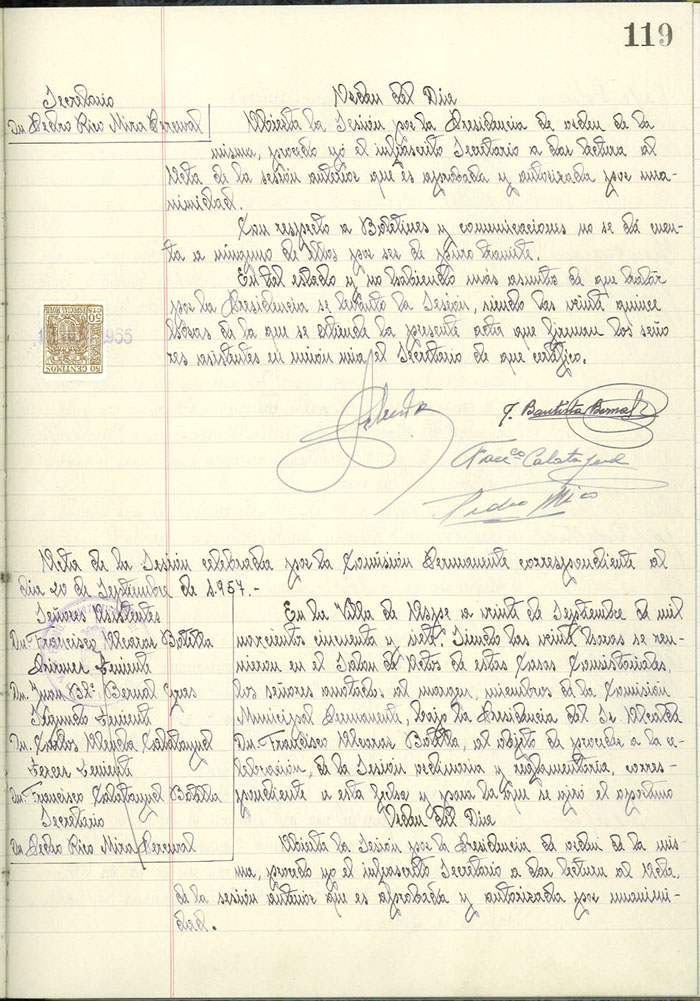 119
Secretario
Dn Pedro Rico Mira Perceval
Orden del Dia
Abierta la Sesión por la Presidencia de orden de la
misma, procedo yó el infrascrito Secretario a dar lectura al
Acta de la sesión anterior que es aprobada y autorizada por una-
nimidad.
Con respecto a Boletines y comunicaciones no se dá cuen-
ta a ninguno de ellos por ser de puro tramite.
En tal estado y no habiendo más asuntos de que tratar
por la Presidencia se levantó la Sesión, siendo las veinte quince
horas de la que se extiende la presente acta que firman los seño
res asistentes en unión mia el Secretario de que certifico.
ESPECIAL MOVIL
50 CTS
50 CENTIMOS
1955
J. Bautista Bernal
Franco Calatayud
Pedro Mico
Acta de la Sesión celebrada por la Comisión Permanente correspondiente al
dia 20 de Septiembre de 1.957.-
Señores Asistentes
Dn. Francisco Alcaraz Botella
Primer Teniente
Dn. Juan Bta. Bernal
Segundo Teniente
Dn. Carlos Calatayud
Tercer Teniente
Dn. Francisco Calatayud Botella
Secretario
Dn. Pedro Rico Mira Perceval
En la Villa de Aspe a veinte de Septiembre de mil
novecientos cincuenta y siete. Siendo las veinte horas se reu-
nieron en el Salon de Actos de estas Casas Consistoriales,
los señores anotados al margen, miembros de la Comisión
Municipal Permanente, bajo la Presidencia del Sr Alcalde
Dn. Francisco Alcaraz Botella, al objeto de proceder a la ce-
lebración, de la Sesión ordinaria y reglamentaria, corres-
pondiente a esta fecha y para la que se giró el oportuno
Orden del Dia
Abierta la Sesión por la Presidencia de orden de la mis-
ma, procedo yó el infrascrito Secretario a dar lectura al Acta,
de la sesión anterior que es aprobada y autorizada por unanimi-
dad.